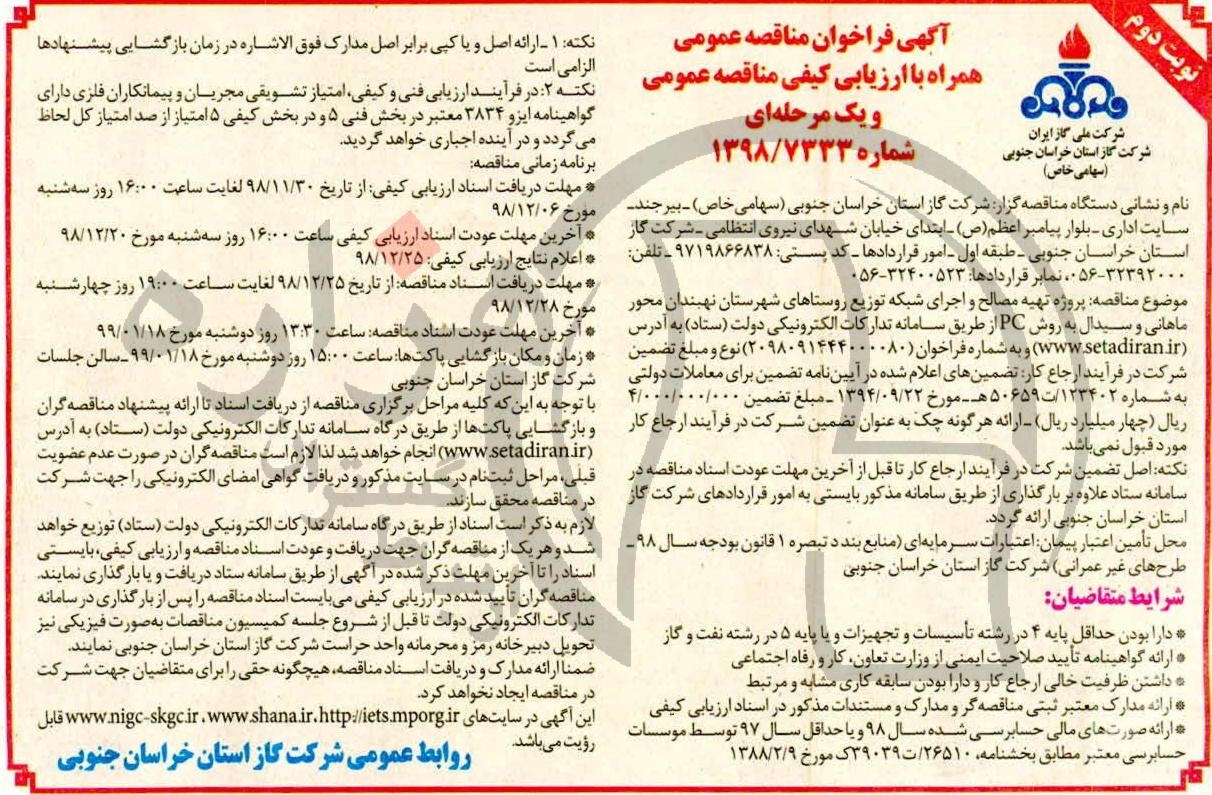 نوبت دوم
شرکت ملی گاز ایران
شرکت گاز استان خراسان جنوبی
(سهامی خاص)
آگهی فراخوان مناقصه عمومی
همراه با ارزیابی کیفی مناقصه عمومی
و یک مرحله‌ای
شماره ۱۳۹۸/۷۳۳۳
نام و نشانی دستگاه مناقصه‌گزار: شرکت گاز استان خراسان جنوبی (سهامی خاص) ـ بیرجند ـ
سایت اداری ـ بلوار پیامبر اعظم(ص) ـ ابتدای خیابان شهدای نیروی انتظامی ـ شرکت گاز
استان خراسان جنوبی ـ طبقه اول ـ امور قراردادها ـ کد پستی: ۹۷۱۹۸۶۶۸۳۸ ـ تلفن:
۰۵۶-۳۲۳۹۲۰۰۰، نمابر قراردادها: ۰۵۶-۳۲۴۰۰۵۲۳
موضوع مناقصه: پروژه تهیه مصالح و اجرای شبکه توزیع روستاهای شهرستان نهبندان محور
ماهانی و سیدال به روش PC از طریق سامانه تدارکات الکترونیکی دولت (ستاد) به آدرس
(www.setadiran.ir) و به شماره فراخوان (۲۰۹۸۰۹۱۴۴۴۰۰۰۰۸۰) نوع و مبلغ تضمین
شرکت در فرآیند ارجاع کار: تضمین‌های اعلام شده در آیین‌نامه تضمین برای معاملات دولتی
به شماره ۱۲۳۴۰۲/ت۵۰۶۵۹هـ ـ مورخ ۱۳۹۴/۰۹/۲۲ ـ مبلغ تضمین ۴/۰۰۰/۰۰۰/۰۰۰
ریال (چهار میلیارد ریال) ـ ارائه هرگونه چک به عنوان تضمین شرکت در فرآیند ارجاع کار
مورد قبول نمی‌باشد.
نکته: اصل تضمین شرکت در فرآیند ارجاع کار تا قبل از آخرین مهلت عودت اسناد مناقصه در
سامانه ستاد علاوه بر بارگذاری از طریق سامانه مذکور بایستی به امور قراردادهای شرکت گاز
استان خراسان جنوبی ارائه گردد.
محل تأمین اعتبار پیمان: اعتبارات سرمایه‌ای (منابع بند د تبصره ۱ قانون بودجه سال ۹۸ ـ
طرح‌های غیر عمرانی) شرکت گاز استان خراسان جنوبی
شرایط متقاضیان:
* دارا بودن حداقل پایه ۴ در رشته تأسیسات و تجهیزات و یا پایه ۵ در رشته نفت و گاز
* ارائه گواهینامه تأیید صلاحیت ایمنی از وزارت تعاون، کار و رفاه اجتماعی
* داشتن ظرفیت خالی ارجاع کار و دارا بودن سابقه کاری مشابه و مرتبط
* ارائه مدارک معتبر ثبتی مناقصه‌گر و مدارک و مستندات مذکور در اسناد ارزیابی کیفی
* ارائه صورت‌های مالی حسابرسی شده سال ۹۸ و یا حداقل سال ۹۷ توسط موسسات
حسابرسی معتبر مطابق بخشنامه، ۲۶۵۱۰/ت۳۹۰۳۹ک مورخ ۱۳۸۸/۲/۹
نکته: ۱ ـ ارائه اصل و یا کپی برابر اصل مدارک فوق الاشاره در زمان بازگشایی پیشنهادها
الزامی است
نکته ۲: در فرآیند ارزیابی فنی و کیفی، امتیاز تشویقی مجریان و پیمانکاران فلزی دارای
گواهینامه ایزو ۳۸۳۴ معتبر در بخش فنی ۵ و در بخش کیفی ۵ امتیاز از صد امتیاز کل لحاظ
می‌گردد و در آینده اجباری خواهد گردید.
برنامه زمانی مناقصه:
* مهلت دریافت اسناد ارزیابی کیفی: از تاریخ ۹۸/۱۱/۳۰ لغایت ساعت ۱۶:۰۰ روز سه‌شنبه
مورخ ۹۸/۱۲/۰۶
* آخرین مهلت عودت اسناد ارزیابی کیفی ساعت ۱۶:۰۰ روز سه‌شنبه مورخ ۹۸/۱۲/۲۰
* اعلام نتایج ارزیابی کیفی: ۹۸/۱۲/۲۵
* مهلت دریافت اسناد مناقصه: از تاریخ ۹۸/۱۲/۲۵ لغایت ساعت ۱۹:۰۰ روز چهارشنبه
مورخ ۹۸/۱۲/۲۸
* آخرین مهلت عودت اسناد مناقصه: ساعت ۱۳:۳۰ روز دوشنبه مورخ ۹۹/۰۱/۱۸
* زمان و مکان بازگشایی پاکت‌ها: ساعت ۱۵:۰۰ روز دوشنبه مورخ ۹۹/۰۱/۱۸ ـ سالن جلسات
شرکت گاز استان خراسان جنوبی
با توجه به این که کلیه مراحل برگزاری مناقصه از دریافت اسناد تا ارائه پیشنهاد مناقصه‌گران
و بازگشایی پاکت‌ها از طریق درگاه سامانه تدارکات الکترونیکی دولت (ستاد) به آدرس
(www.setadiran.ir) انجام خواهد شد لذا لازم است مناقصه‌گران در صورت عدم عضویت
قبلی، مراحل ثبت‌نام در سایت مذکور و دریافت گواهی امضای الکترونیکی را جهت شرکت
در مناقصه محقق سازند.
لازم به ذکر است اسناد از طریق درگاه سامانه تدارکات الکترونیکی دولت (ستاد) توزیع خواهد
شد و هر یک از مناقصه‌گران جهت دریافت و عودت اسناد مناقصه و ارزیابی کیفی، بایستی
اسناد را تا آخرین مهلت ذکر شده در آگهی از طریق سامانه ستاد دریافت و یا بارگذاری نمایند.
مناقصه‌گران تأیید شده در ارزیابی کیفی می‌بایست اسناد مناقصه را پس از بارگذاری در سامانه
تدارکات الکترونیکی دولت تا قبل از شروع جلسه کمیسیون مناقصات به‌صورت فیزیکی نیز
تحویل دبیرخانه رمز و محرمانه واحد حراست شرکت گاز استان خراسان جنوبی نمایند.
ضمنا ارائه مدارک و دریافت اسناد مناقصه، هیچگونه حقی را برای متقاضیان جهت شرکت
در مناقصه ایجاد نخواهد کرد.
این آگهی در سایت‌های www.nigc-skgc.ir ، www.shana.ir، http://iets.mporg.ir قابل
رؤیت می‌باشد.
روابط عمومی شرکت گاز استان خراسان جنوبی